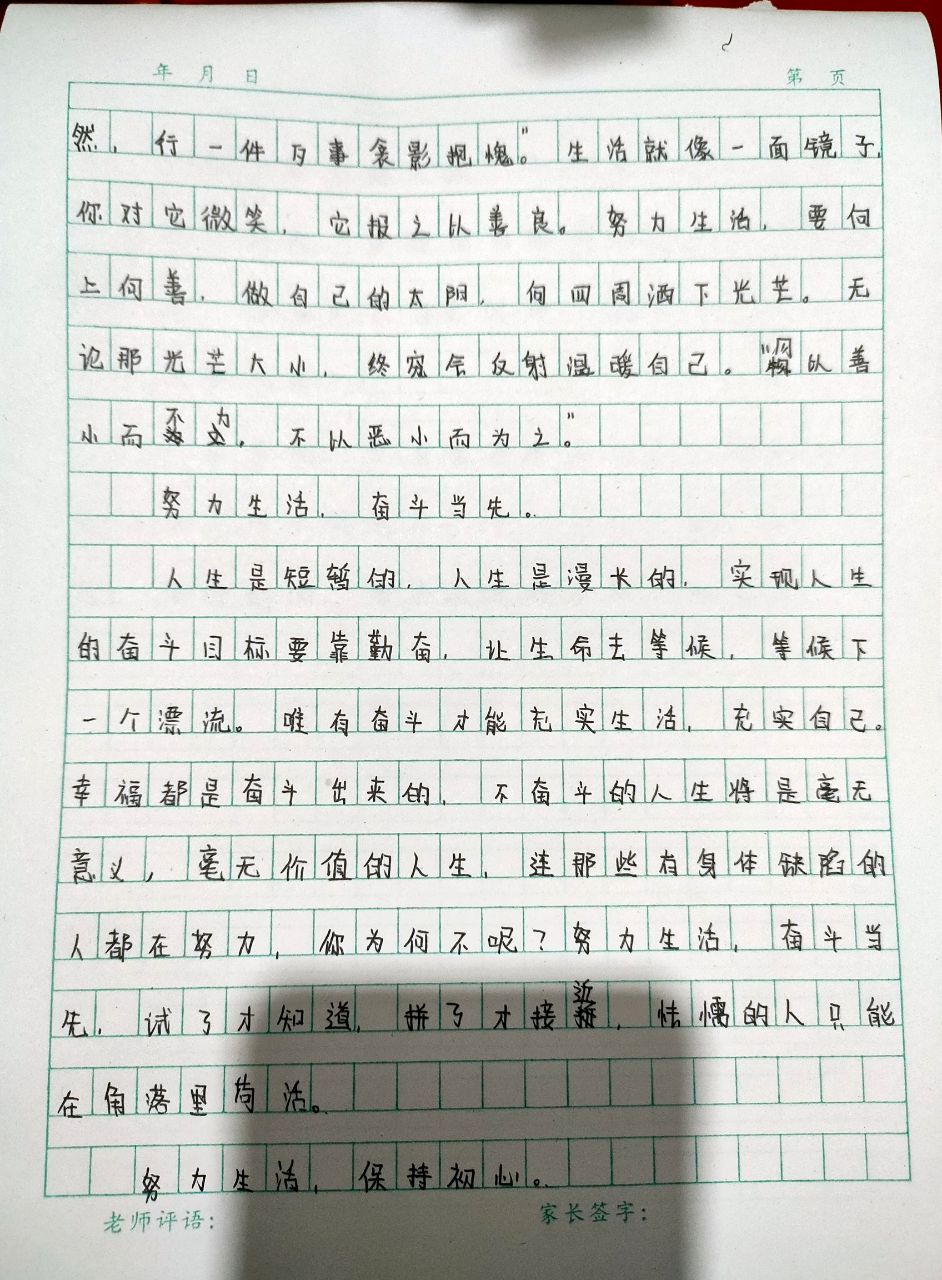 年 月 日 第 页
然，行一件歹事衾影抱愧。”生活就像一面镜子，
你对它微笑，它报之以善良。努力生活，要向
上向善，做自己的太阳，向四周洒下光芒。无
论那光芒大小，终究会反射温暖自己。“勿以善
小而不为，不以恶小而为之。”
努力生活，奋斗当先。
人生是短暂的，人生是漫长的，实现人生
的奋斗目标要靠勤奋，让生命去等候，等候下
一个漂流。唯有奋斗才能充实生活，充实自己。
幸福都是奋斗出来的，不奋斗的人生将是毫无
意义，毫无价值的人生，连那些有身体缺陷的
人都在努力，你为何不呢？努力生活，奋斗当
先，试了才知道，拼了才接近，怯懦的人只能
在角落里苟活。
努力生活，保持初心。
老师评语： 家长签字：